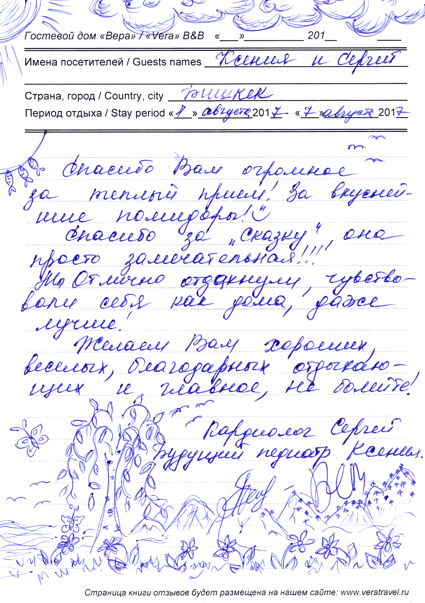 Гостевой дом «Вера» / «Vera» B&B «___»__________ 201__
Имена посетителей / Guests names Ксения и Сергей
Страна, город / Country, city Бишкек
Период отдыха / Stay period «1» августа 2017 - «7» августа 2017
Спасибо Вам огромное
за теплый прием! За вкусней-
шие помидоры!
Спасибо за „Сказку", она
просто замечательная!!!
Мы Отлично отдохнули, чувство-
вали себя как дома, даже
лучше!
Желаем Вам хороших,
веселых, благодарных отдыхаю-
щих и главное, не болейте!
Кардиолог Сергей
Будущий педиатр Ксения.
Страница книги отзывов будет размещена на нашем сайте: www.veratravel.ru